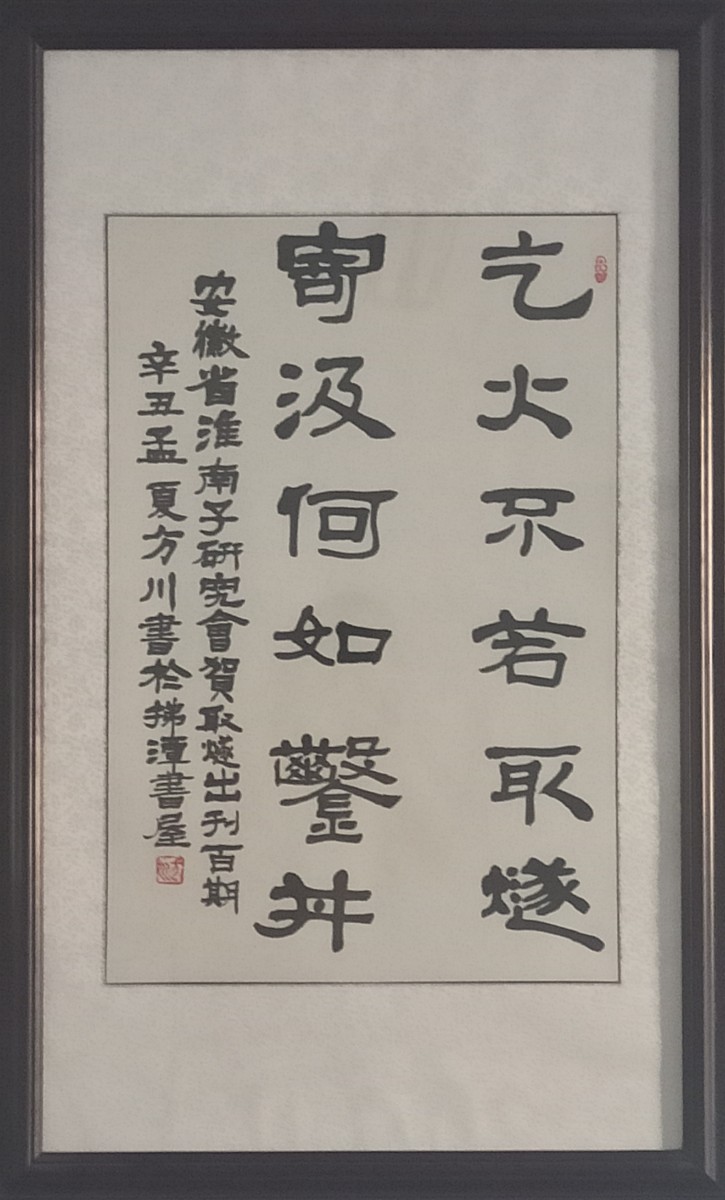 乞火不若取燧
寄汲何如鑿井
安徽省淮南子研究會賀取燧出刊百期
辛丑孟夏方川書於拂潭書屋